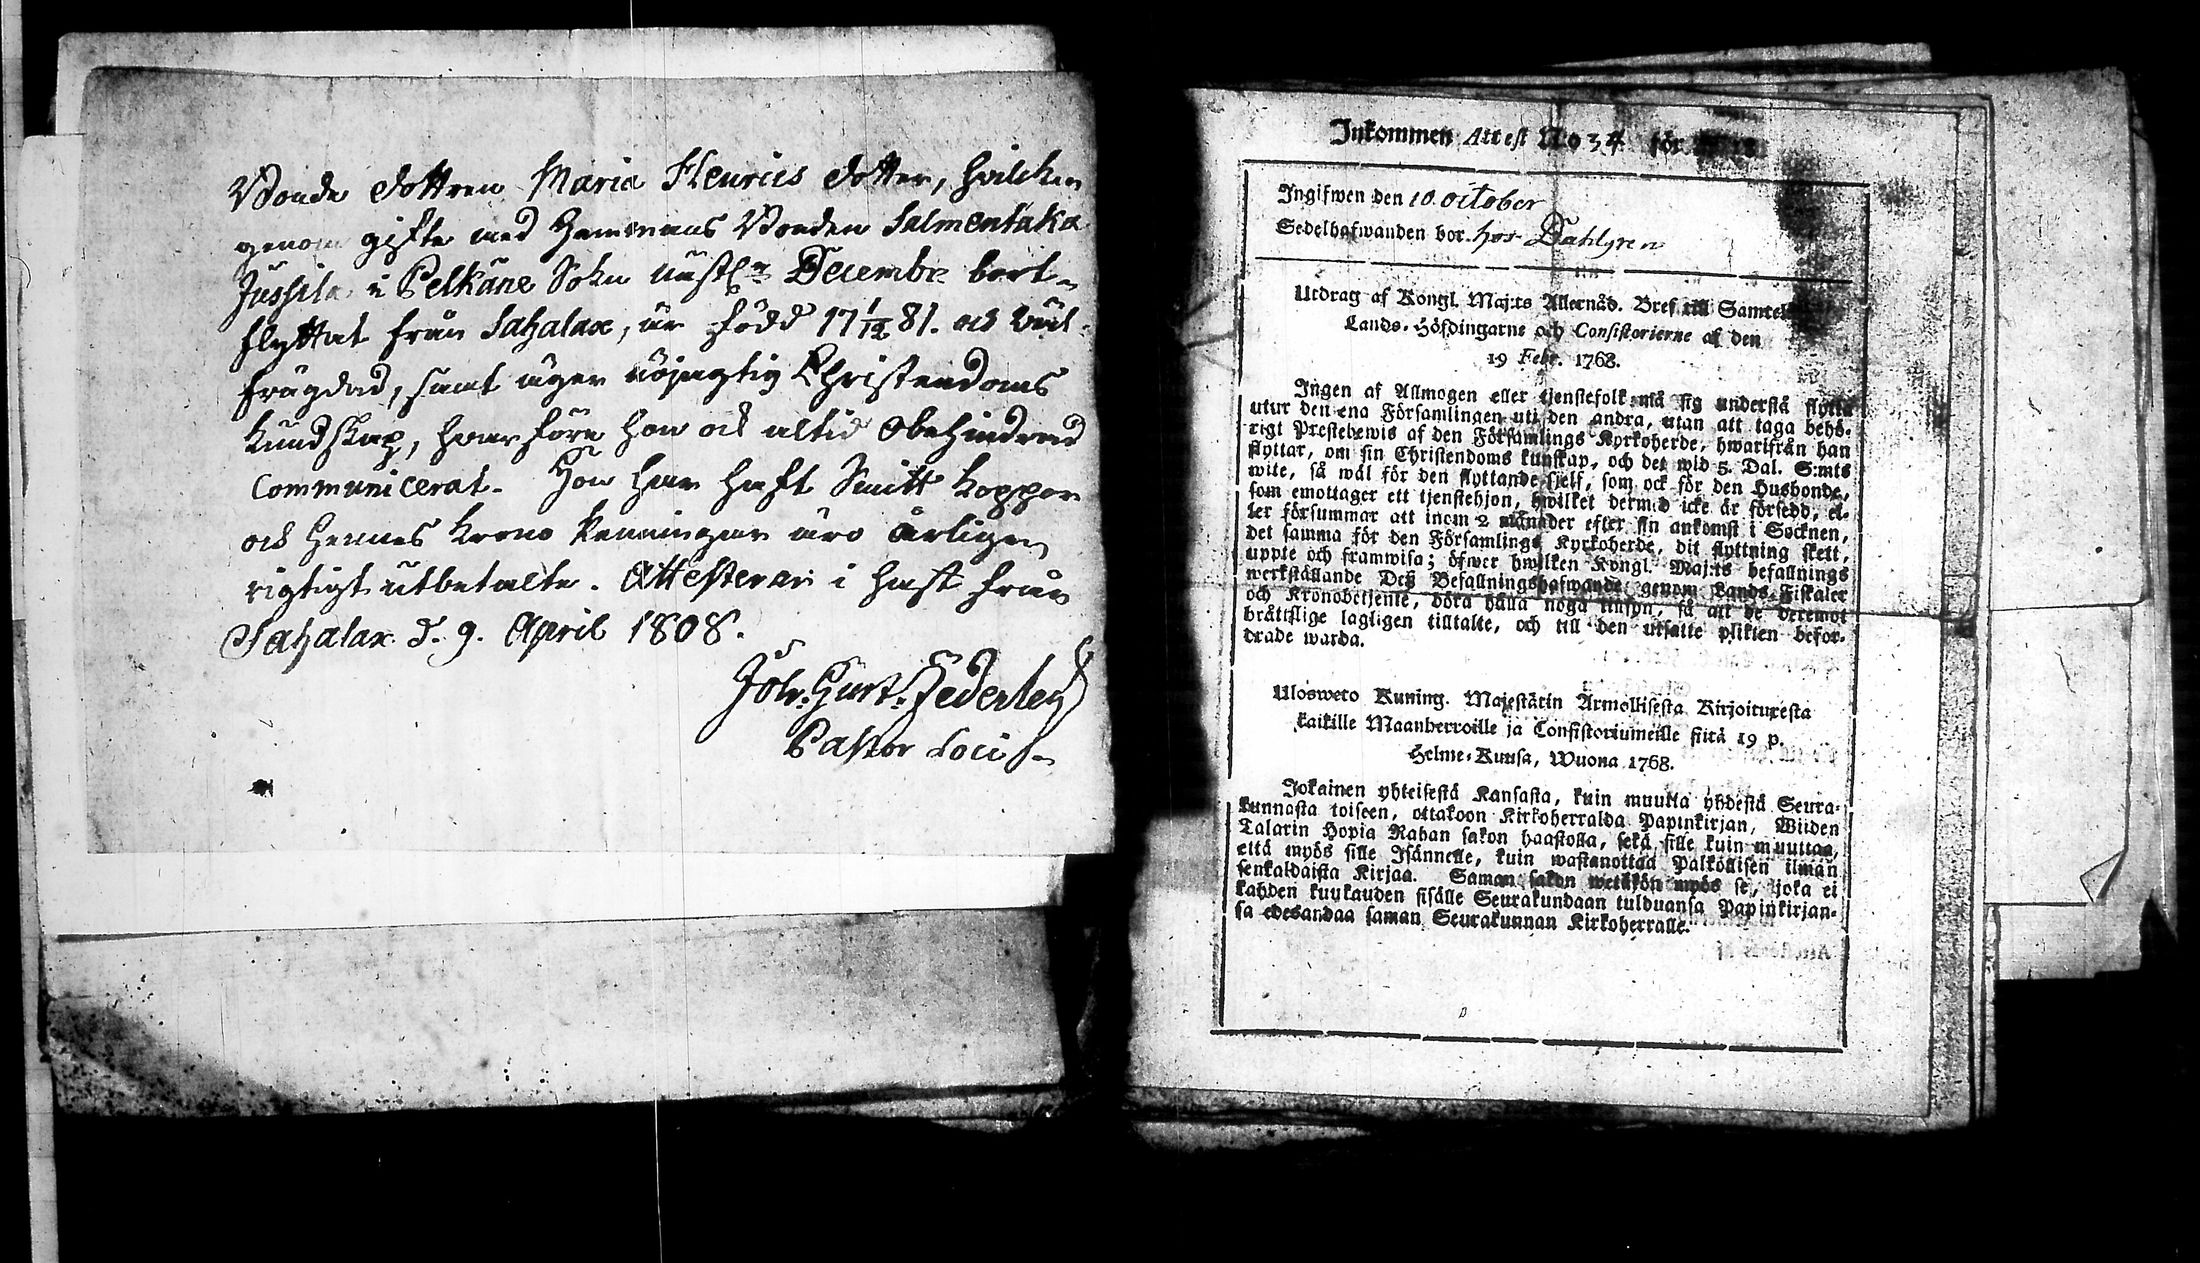 Bonde dottren Maria Henrics dotter, hvilken
genom gifte med Hemmans Bonden Salmentaka
Jussila i Pelkäne Sokn näst Decembr. bort-
flyttat från Sahalax, är född 17 1/12 81. ock väl
frägdad, samt äger nöjagtig Christendoms
Kundskap, hvarföre hon ock altid Obehindrad
Communicerat. Hon har haft Smitt Koppor
ock Hennes Krono Penningar äro Årligen
rigtigt utbetalte. Attesterar i hast från
Sahalax d. 9. April 1808.
Joh. Gust. Federley
Pastor Loci
Inkommen Attest No 34 för
Ingifwen den 10 october
Sedelhafwanden bor hos Dahlgren
Utdrag af Kongl. Maj:ts Allernåd. Bref till Samtel
Lands-Höfdingarne och Consistorierne af den
19 Febr. 1768.
Ingen af Allmogen eller tjenstefolk må sig understå flytta
utur den ena Församlingen uti den andra, utan att taga behö-
rigt Prestebewis af den Församlings Kyrkoherde, hwarifrån han
flyttar, om sin Christendoms kunskap, och det wid 5. Dal. S:mts
wite, så wäl för den flyttande sjelf, som ock för den Husbonde,
som emottager ett tjenstehjon, hwilket dermed icke är försedd, el-
ler försummar att inom 2 månader efter sin ankomst i Socknen,
det samma för den Församlings Kyrkoherde, dit flyttning skett,
uppte och framwisa; öfwer hwilken Kongl. Maj:ts befallnings
werkställande Deß Befallningshafwande genom Lands-Fiskaler
och Kronobetjente, böra hålla noga tillsyn, så att de deremot
bråttslige lagligen tilltalte, och till den utsatte plikten befor-
drade warda.
Ulosweto Kuning. Majestätin Armollisesta Kirjoituxesta
kaikille Maanherroille ja Consistoriumeille siitä 19 p.
Helme-Kuusa, Wuona 1768.
Jokainen yhteisestä Kansasta, kuin muutta yhdestä Seura-
kunnasta toiseen, ottakoon Kirkoherralda Papinkirjan, Wiiden
Talarin Hopia Rahan sakon haastolla, sekä sille kuin muuttaa,
että myös sille Isännelle, kuin wastanottaa Palkollisen ilman
senkaldaista Kirjaa. Saman sakon wetäkön myös se, joka ei
kahden kuukauden sisälle Seurakundaan tulduansa Papinkirjan-
sa edesandaa saman Seurakunnan Kirkoherralle.